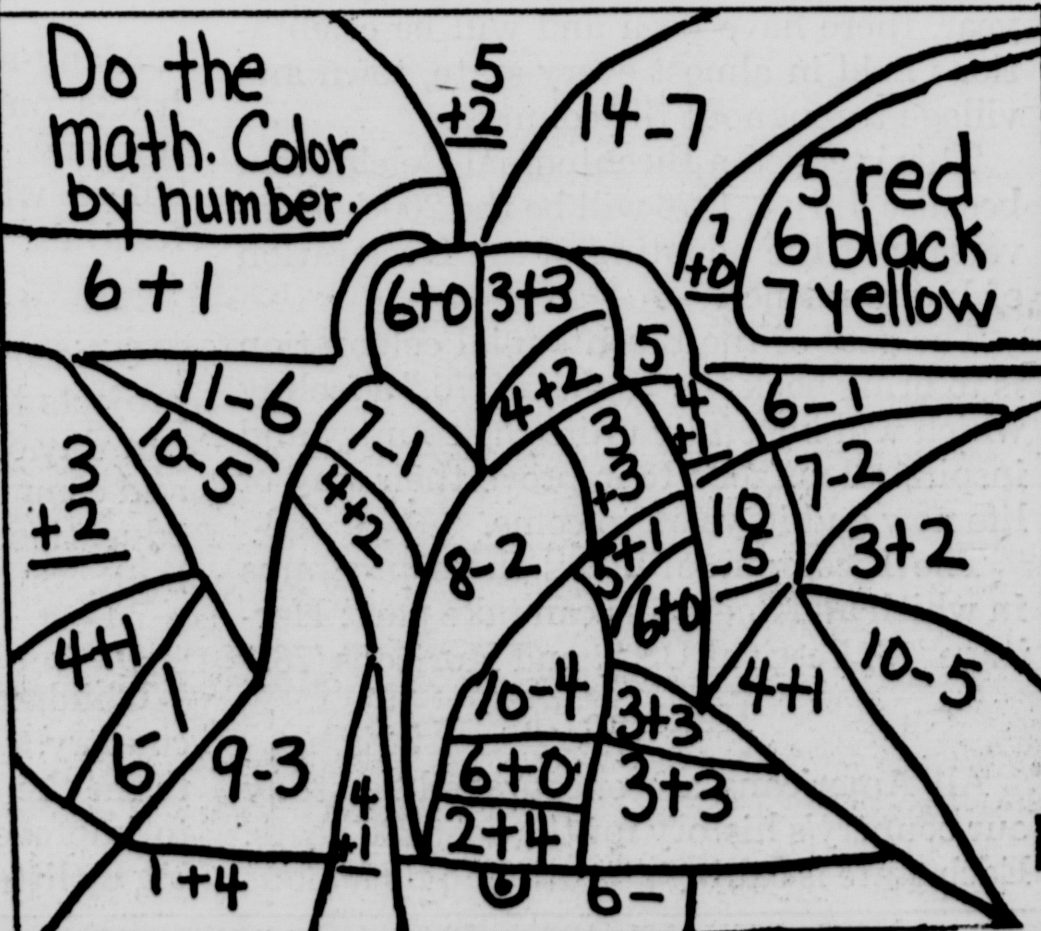 Do the
math. Color
by number.
5
+2
14-7
5 red
6 black
7 yellow
7
+0
6+1
6+0
3+3
5
4+2
11-6
10-5
7-1
4+2
3
+3
4
+1
6-1
7-2
3
+2
8-2
5+1
10
-5
3+2
6+0
4+1
10-4
3+3
4+1
10-5
9-3
6+0
3+3
4
+1
2+4
1+4
6
6-